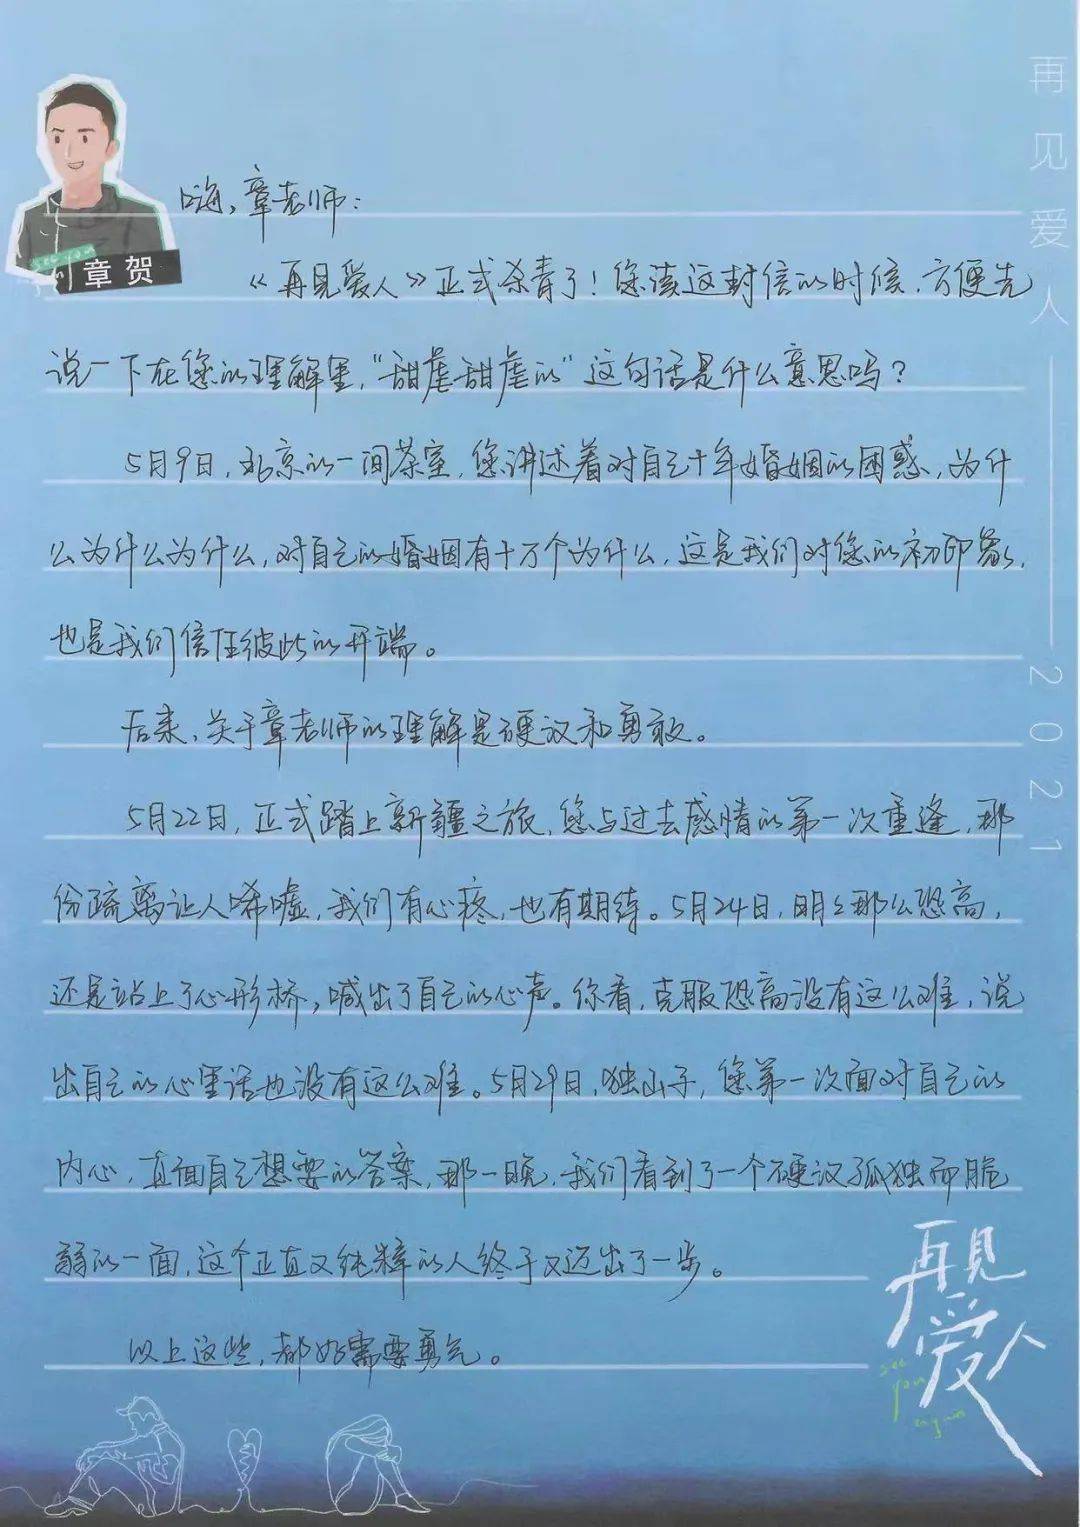 再见爱人 2021
see you
章贺
嗨，章老师：
《再见爱人》正式杀青了！您读这封信的时候，方便先
说一下在您的理解里，“甜虐甜虐的”这句话是什么意思吗？
5月9日，北京的一间茶室，您讲述着对自己十年婚姻的困惑，为什
么为什么为什么，对自己的婚姻有十万个为什么，这是我们对您的初印象，
也是我们信任彼此的开端。
后来，关于章老师的理解是硬汉和勇敢。
5月22日，正式踏上新疆之旅，您与过去感情的第一次重逢，那
份疏离让人唏嘘，我们有心疼，也有期待。5月24日，明明那么恐高，
还是站上了心形桥，喊出了自己的心声。你看，克服恐高没有这么难，说
出自己的心里话也没有这么难。5月29日，独山子，您第一次面对自己的
内心，直面自己想要的答案，那一晚，我们看到了一个硬汉孤独而脆
弱的一面，这个正直又纯粹的人终于又迈出了一步。
以上这些，都好需要勇气。
再见爱人
see you again